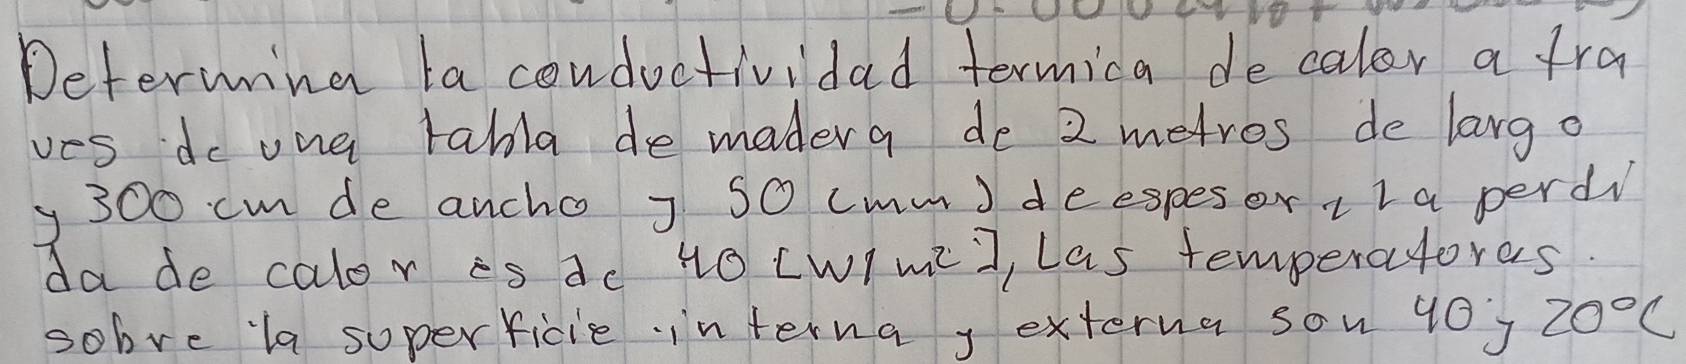 Determina la conductividad termica de calor a tra
ves de una tabla de madera de 2 metros de largo
y 300 cm de ancho y 50 (mm) de espesor, la perdi
da de calor es de 40 [W/m²], Las temperaturas.
sobre la superficie interna y externa son 40 y 20°C